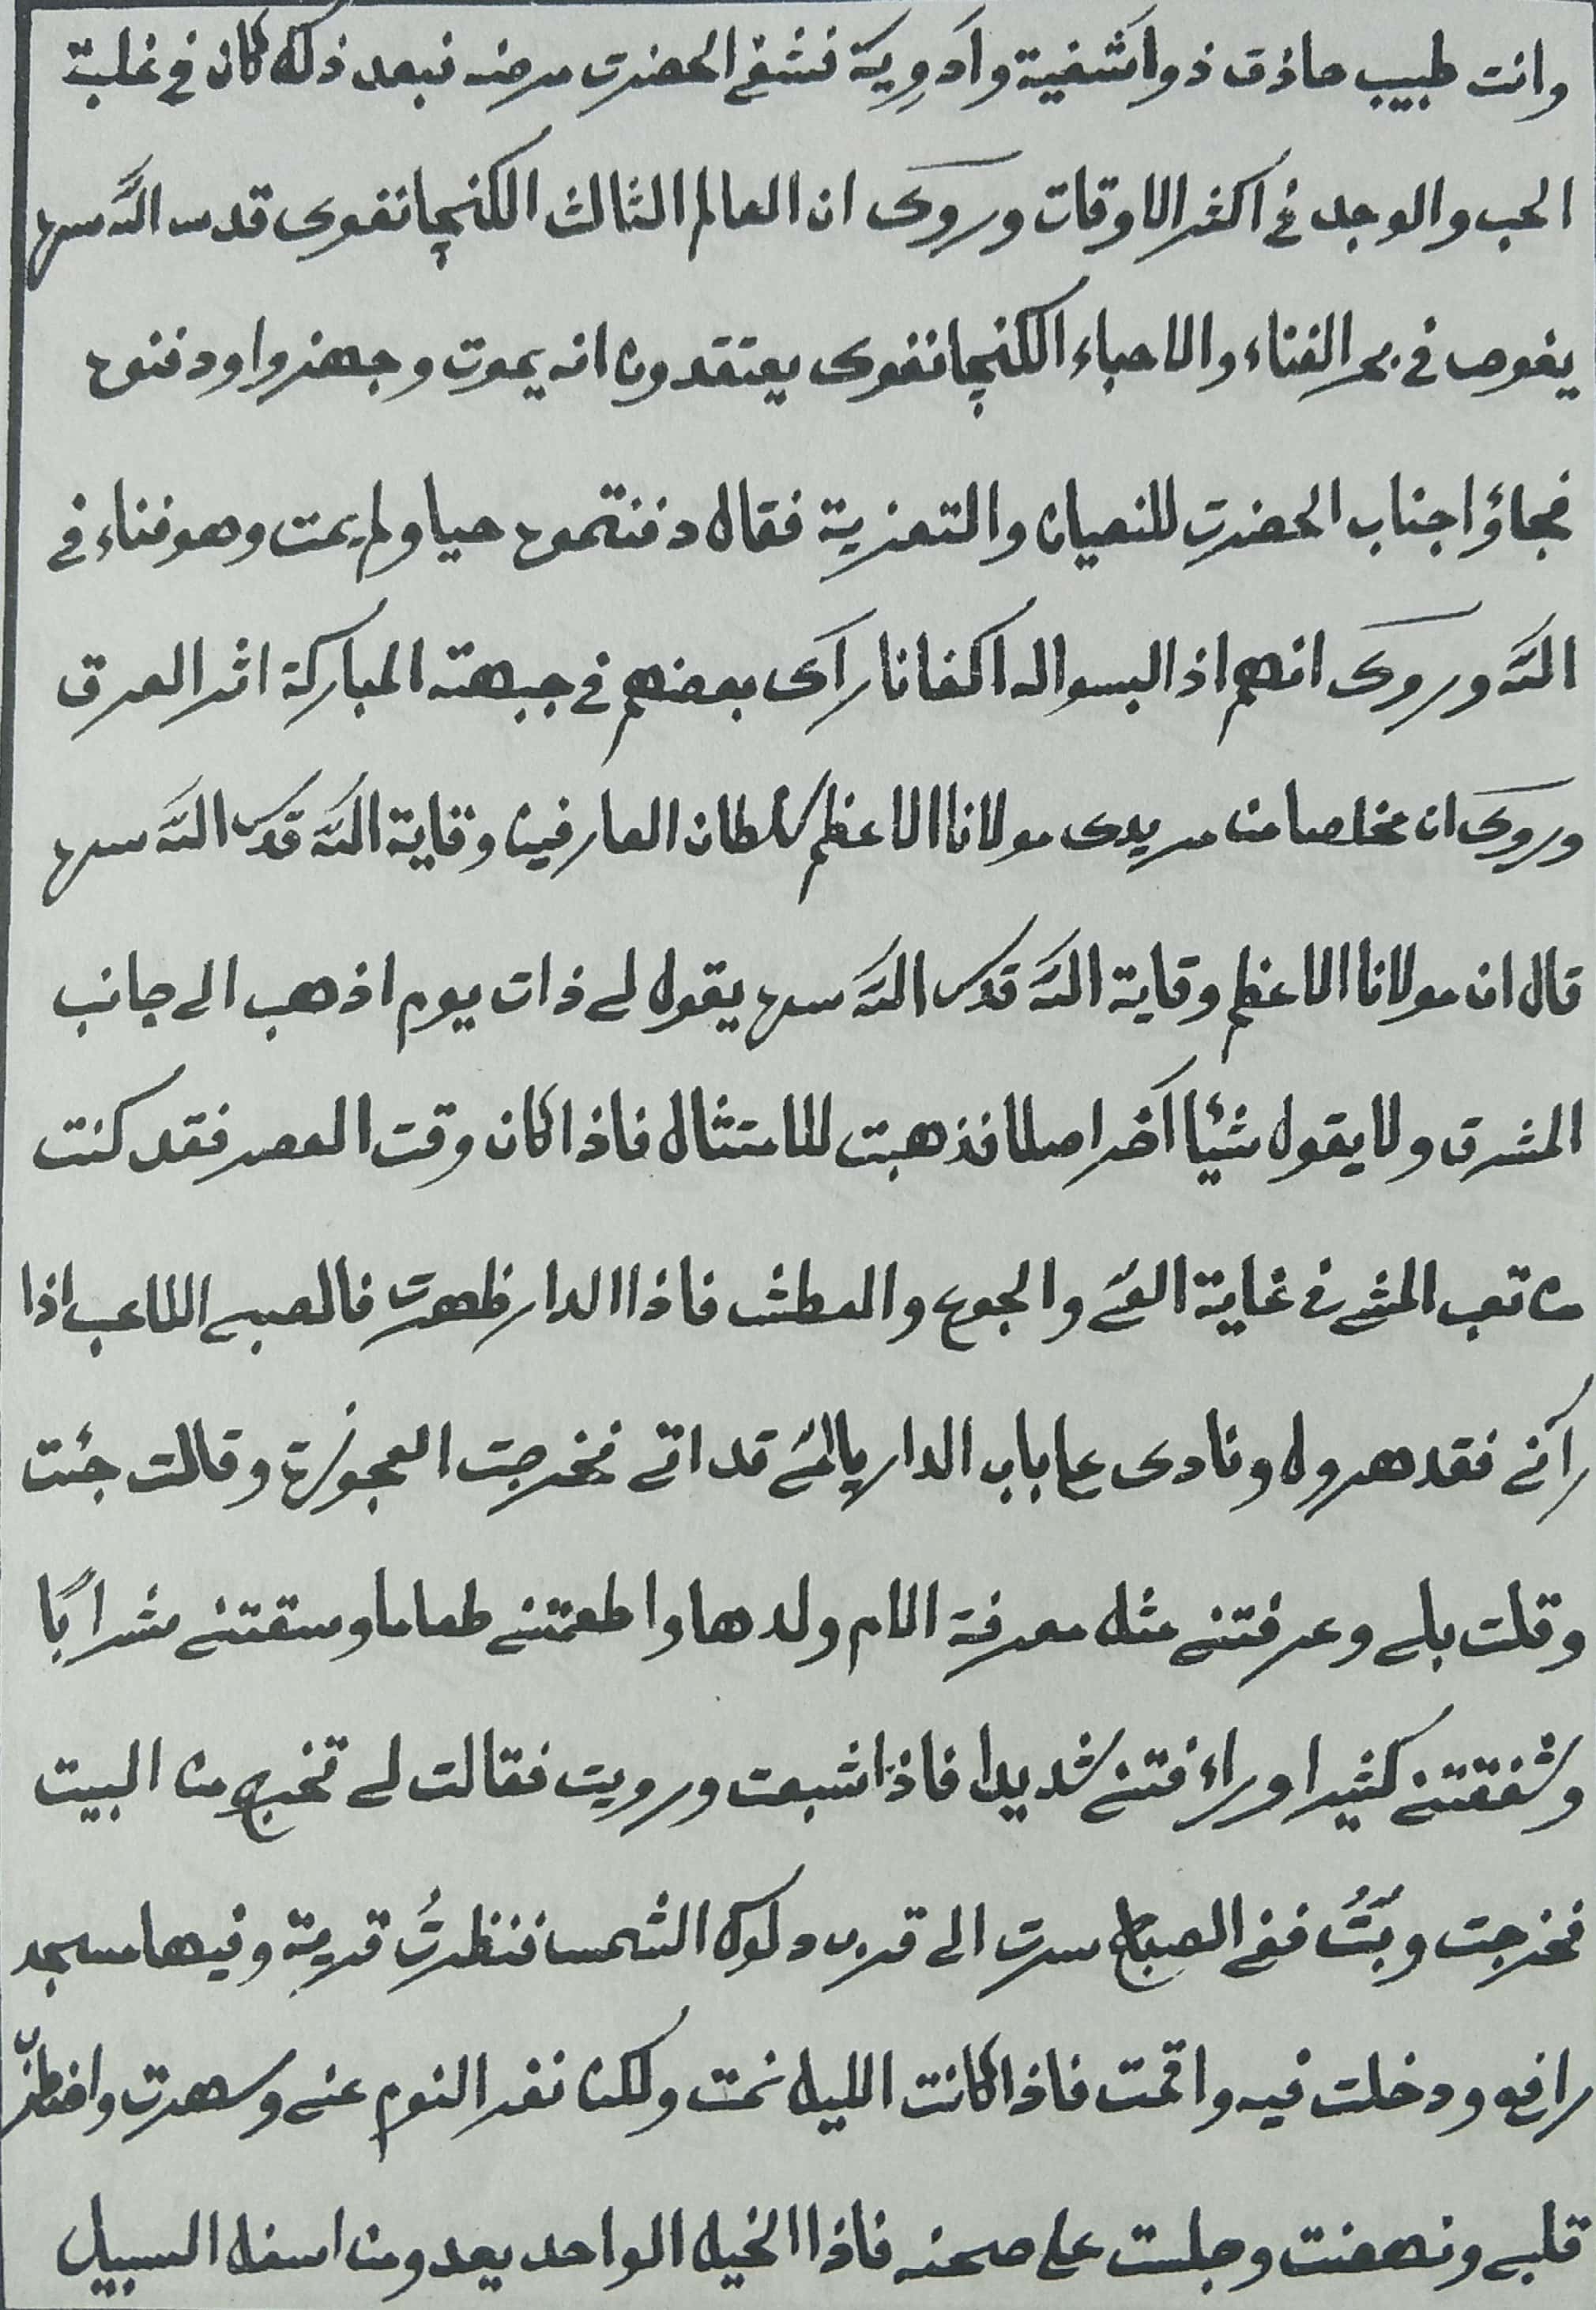 وانت طبيب حاذق ذو اشفية وأدوِيَة فشفى الحضرت مرضه فبعد ذلك كان في غلبة
الحب والوجد في اكثر الاوقات وروى ان العالم الثالث الكنچانفوى قدس اللّه سره
يغوص في بحر الفناء والاحباء الكنچانفوى يعتقدون انه يموت وجهزوا ودفنوه
فجاؤا جناب الحضرت للنعيان والتعزية فقال دفنتموه حيا ولم يمت وهو فناء في
اللّه وروى انهم اذ البسوا له اكفانا رآى بعضهم في جبهته المباركة اثر العرق
وروى ان مخلصا من مريدى مولانا الاعظم سلطان العارفين وقاية اللّه قدس اللّه سره
قال ان مولانا الاعظم وقاية اللّه قدس اللّه سره يقول لى ذات يوم اذهب الى جانب
المشرق ولا يقول شئًا آخر اصلا فذهبت للامتثال فاذا كان وقت العصر فقد كنت
من تعب المشى في غاية العى والجوع والعطش فاذا الدار ظهرت فالصبى اللاعب اذا
رآنى فقد هرول ونادى على باب الدار قد اتى فخرجت العجوزة وقالت جئت
وقلت بلى وعرفتنى مثل معرفة الام ولدها واطعمتنى طعاما وسقتنى شرابًا
وشفقتنى كثيرا وراءفتنى شديدا فاذا شبعت ورويت فقالت لى تخرج من البيت
فخرجت وبَتُّ ففى الصباح سرت الى قرب دلوك الشمس فنظرتُ قرية وفيها مسجد
رافع ودخلت فيه واقمت فاذا كانت الليل نمت ولكن نفر النوم عنى وسهرت
قلبى ونهضت وجلست على صحنه فاذا الخيل الواحد يعدو من اسفل السبيل